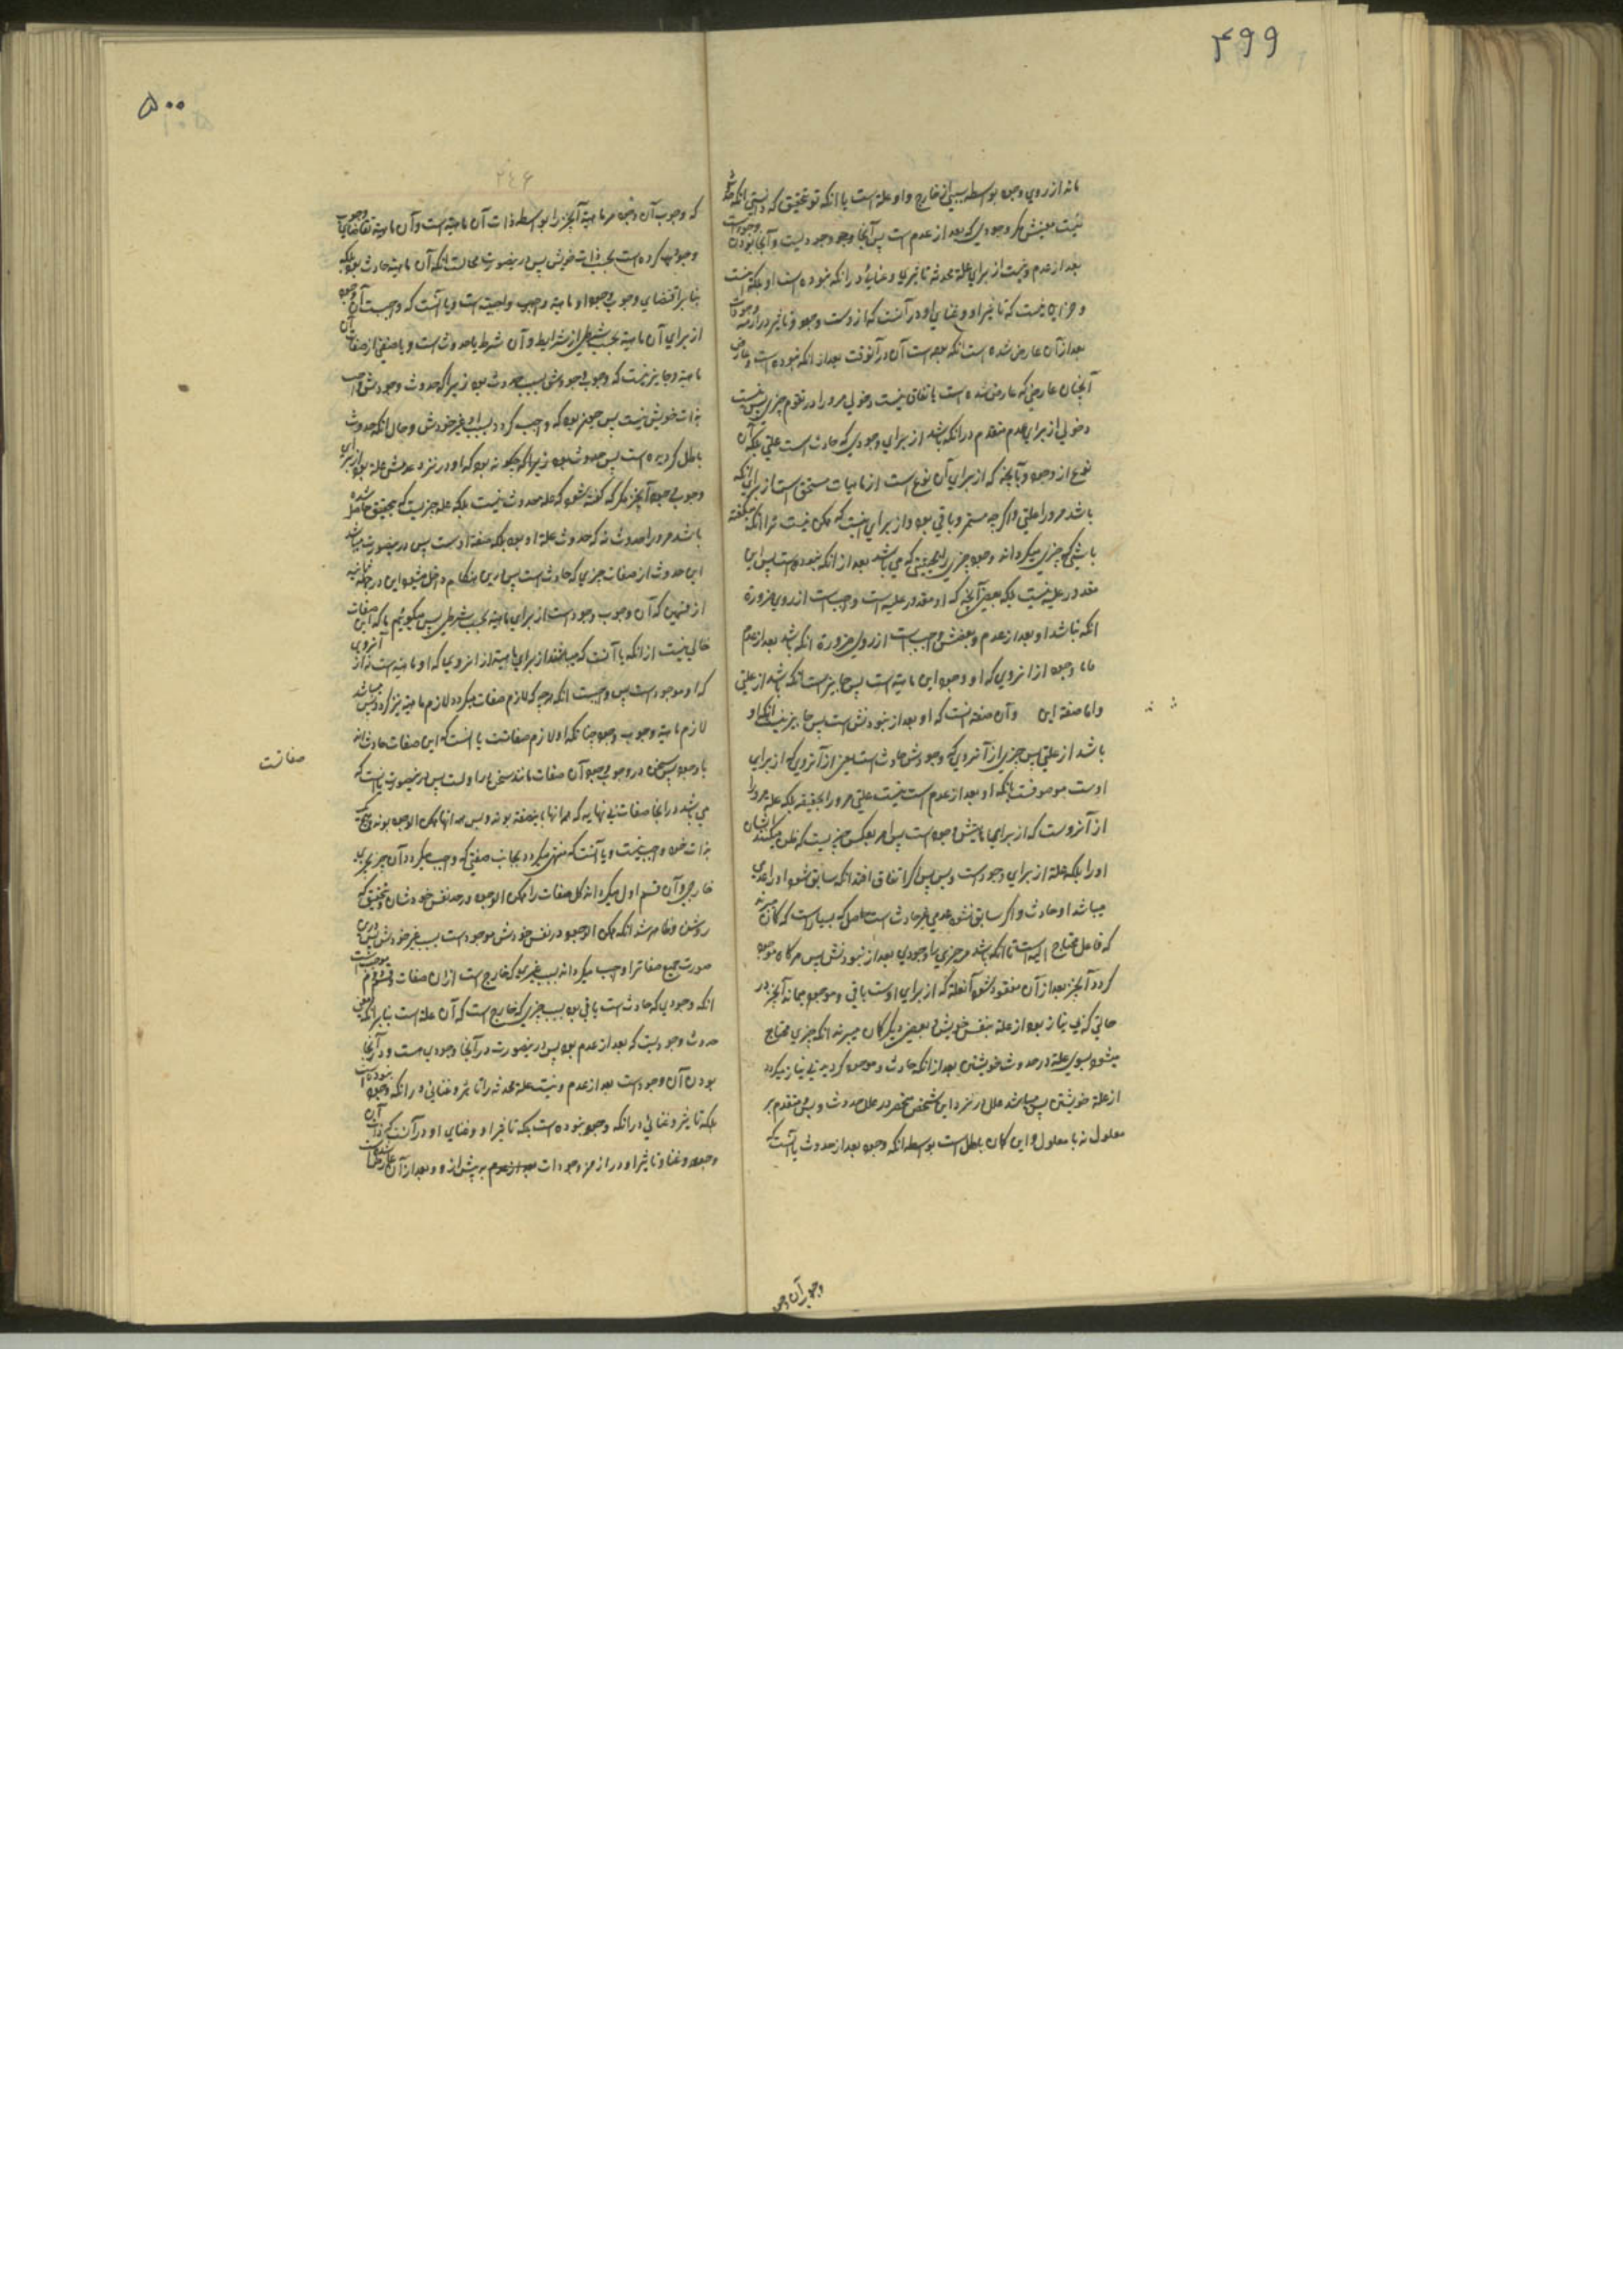 ۴۹۹
ماند از روی وجود بواسطه سببی خارج و او علة است یا انکه تو تحقیق که دانستی انکه
نیست معنیش مکر وجودی که بعد از عدم است پس آنجا وجود وجودیست و آنجا بودن
بعد از عدم و نیست از برای علة محدثه تاثیری و غنائی در انکه نبوده است او بلکه
و جز این نیست که تاثیر او و غنای او در آنست که از وست وجود و تاثیر در ازمنه
بعد از آن عارض شده است انکه بوده است آن در آنوقت بعد از انکه نبوده است و عارض
آنچنان عارضی که عارض شده است باتفاق نیست دخولی مر او را در تقوم چیزی پس نیست
دخولی از برای عدم متقدم در انکه باشد از برای وجودی که حادث است علتی بلکه آن
نوع از وجود و بآنچه که از برای آن نوع است از ماهیات مستحق است از برای انکه
باشد مر او را علتی و اکرچه مستمر و باقی بود و از برای اینست که ممکن نیست ترا انکه بکفته
باشی که چیزی میکرداند وجود چیزی را بحیثیتی که می باشد بعد از انکه نبوده است پس این
مقدور علیه نیست بلکه بعض آنچه که او مقدور علیه است واجب است از روی ضرورة
انکه نباشد او بعد از عدم و بعضش واجب است از روی ضرورة انکه باشد بعد از عدم
فاما وجود از انروی که او وجود این ماهیة است پس جایز است انکه باشد از علتی
و اما صفة این و آن صفة اینست که او بعد از نبودنش است پس جایز نیست انکه او
باشد از علتی پس چیزی از آنروی که وجودش حادث است یعنی از آنروی که از برای
اوست موصوفست بانکه او بعد از عدم است نیست علتی مر او را بحقیقه بلکه علة مر او را
از آنروست که از برای ماهیتش وجود است پس امر بعکس چیزیست که ظن میکنند ایشان
او را بلکه علة از برای وجود است و بس پس اکر اتفاق افتد انکه سابق شود او را عدمی
میباشد او حادث و اکر سابق نشود عدمی غیر حادث است فصل که بسیار است که کمان میبرند
که فاعل محتاج الیه است تا انکه باشد مر چیزی را وجودی بعد از نبودنش پس هر کاه موجود
کردد آنچیز بعد از آن مفقود شود آنعلة که از برای اوست باقی و موجود بماند آنچیز در
حالتی که بی نیاز بود از علة بنفس خویش و بعضی دیکر کمان میبرند انکه چیزی محتاج
میشود بسوی علة در حدوث خویشتن بعد از انکه حادث و موجود کردید بی نیاز میکردد
از علة خویشتن پس میباشد علل در نزد این شخص منحصر در علل حدوث و بس و متقدم بر
معلول نه با معلول و این کمان باطل است بواسطه انکه وجود بعد از حدوث یا آنست که
وجوب آن وجود
۵۰۰
۲۴۶
که وجوب آن وجود مر ماهیة آنچیز را بواسطه ذات آن ماهیة است و آن ماهیة تقاضای وجوب
وجود کرده است بحسب ذات خویش پس در ینصورت محالست انکه آن ماهیة حادث بود بلکه
بنابر اقتضای وجوبی وجود او ماهیة واجب و واجبست و یا آنست که واجبست آن وجود
از برای آن ماهیة بحسب شرطی از شرایط و آن شرط یا حدوث است و یا صفتی از صفات آن
ماهیة و جایز نیست که وجوب وجودش بسبب حدوث بود زیرا که حدوث وجودش واجب
بذات خویش نیست پس چون بود که واجب کردد بسبب او غیر خودش و حال انکه حدوث
باطل کردیده است پس حدوث بود زیرا که چکونه بود که او در نزد عدمش علة بود از برای
وجوب وجود آنچیز مکر که کفته شود که علة حدوث نیست بلکه علة چیزیست که بتحقیق حاصل شده
باشد مر او را حدوث نه که حدوث علة او بود بلکه صفة اوست پس در ینصورت میباشد
این حدوث از صفات چیزی که حادث است پس این هنکام داخل میشود این در جمله ثانیه
از قسمین که آن وجوب وجود است از برای ماهیة بحسب شرطی پس میکوئیم ما که این صفات
خالی نیست از انکه یا آنست که میباشند از برای ماهیة از انروی که او ماهیة است نه از آنروی
که او موجود است پس واجبست انکه هرچه که لازم صفات میکردد لازم ماهیة نیز کردد پس میباشد
لازم ماهیة وجوب وجود چنانکه او لازم صفاتست یا آنست که این صفات حادث اند
با وجود پس سخن در وجوب وجود آن صفات مانند سخن در اولست پس در ینصورت یا آنست که
می باشد در انجا صفات بی نهایه که همه انها باین صفة بوند و پس همه انها ممکن الوجود بوند و هیچیک
بذات خود واجب نیست و یا آنست که منتهی میکردد بجانب صفتی که واجب میکردد آن بچیزی
خارجی و آن قسم اول میکرداند کل صفات را ممکن الوجود در حد نفس خودشان و بتحقیق که
روشن و ظاهر شد انکه ممکن الوجود در نفس خودش موجود است بسبب غیر خودش پس درین
صورت جمیع صفات را واجب میکرداند بسبب غیری که خارج است از ان صفات و قسم دوم موجبست
انکه وجودی که حادث است باقی بود بسبب چیزی که خارج است که آن علة است بنابر انکه معنی
حدوث وجودیست که بعد از عدم بود پس در ینصورت در آنجا وجودی است و در آنجا
بودن آن وجود است بعد از عدم و نیست علة محدثه را تاثیر و غنائی در انکه وجود نبوده است
بلکه تاثیر و غنائی در انکه وجود نبوده است بلکه تاثیر او و غنای او در آنست که ذات آن
وجود و غنا و تاثیر او در از مر وجودات بعد از عدم به پیش از و و بعد از آن عارض شده است
صفاتست